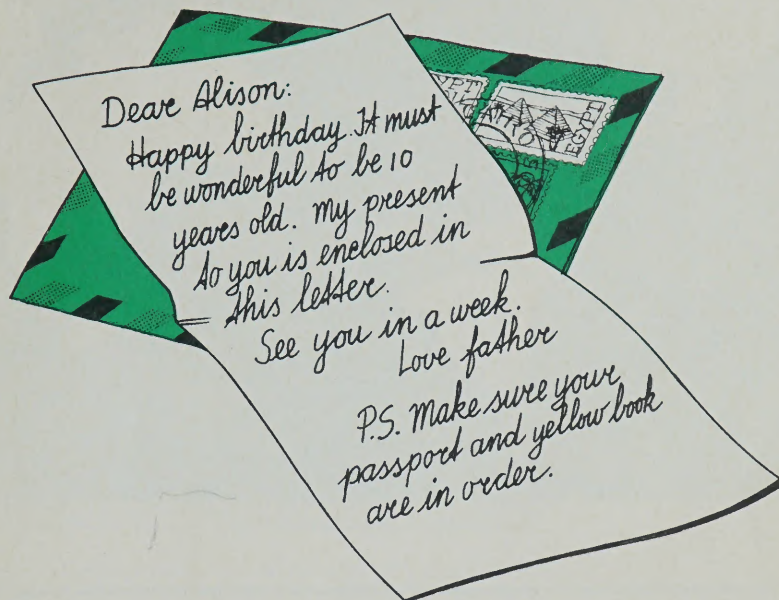 Dear Alison:
Happy birthday. It must
be wonderful to be 10
years old. My present
to you is enclosed in
this letter.
See you in a week.
Love father
P.S. Make sure your
passport and yellow book
are in order.
EGYPT